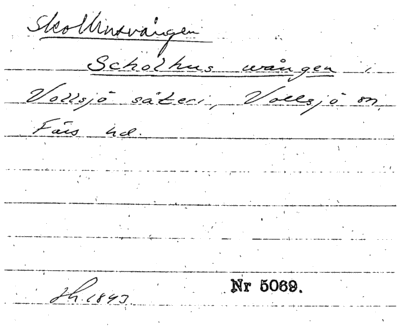 Skolhusvången
Scholhus wången i
Vollsjö säteri, Vollsjö sn.
Färs hd.
Jh. 1893
Nr 5069.